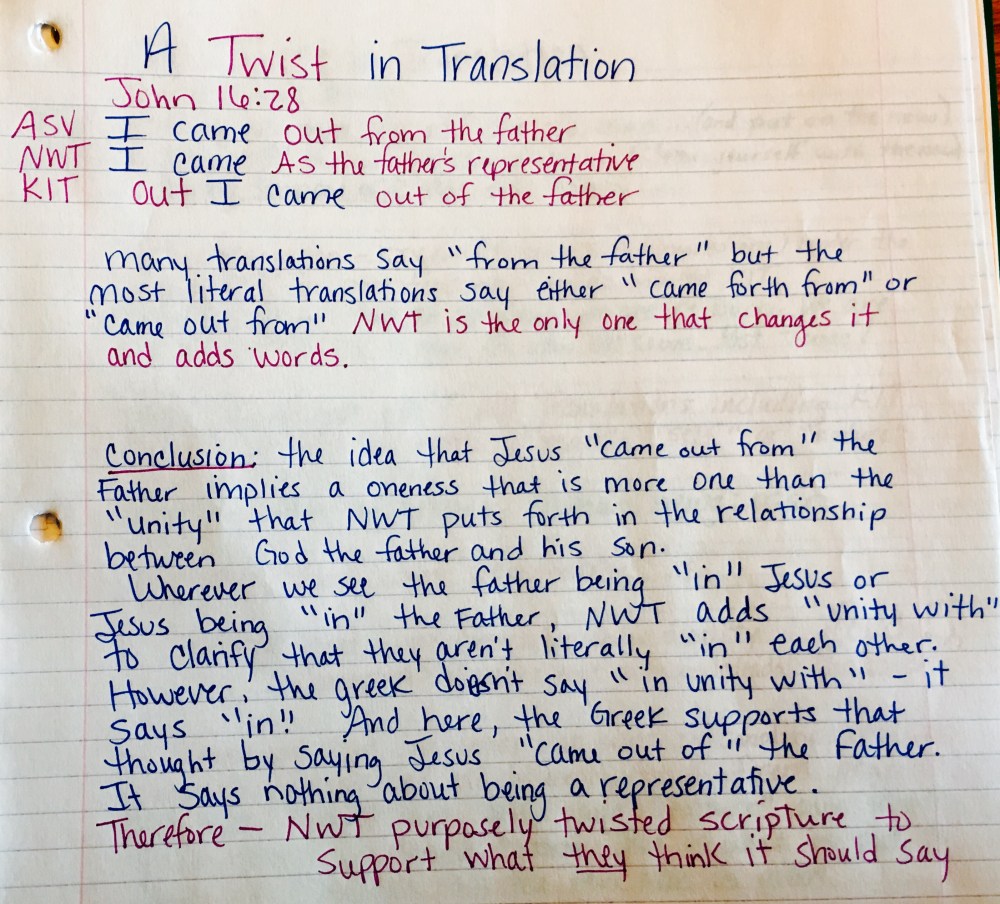 A Twist in Translation
John 16:28
ASV I came out from the father
NWT I came As the father's representative
KIT out I came out of the father
many translations say "from the father" but the
most literal translations say either "came forth from" or
"came out from" NWT is the only one that changes it
and adds words.
Conclusion: the idea that Jesus "came out from" the
Father implies a oneness that is more one than the
"unity" that NWT puts forth in the relationship
between God the father and his son.
Wherever we see the father being "in" Jesus or
Jesus being "in" the Father, NWT adds "unity with"
to clarify that they aren't literally "in" each other.
However, the greek doesn't say "in unity with" - it
says "in". And here, the Greek supports that
thought by saying Jesus "came out of" the Father.
It says nothing about being a representative.
Therefore - NWT purposely twisted scripture to
support what they think it should say